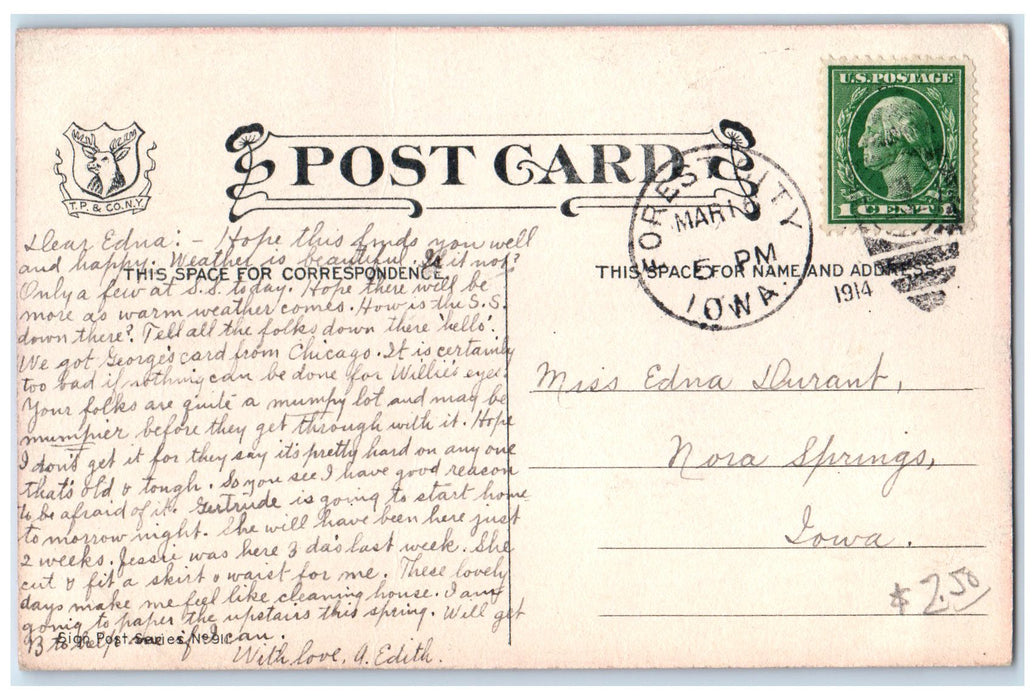 POST CARD
T. P. & CO. N.Y.
U.S. POSTAGE
1 CENT 1
FOREST CITY
MAR 1
5 PM
IOWA.
1914
THIS SPACE FOR CORRESPONDENCE.
THIS SPACE FOR NAME AND ADDRESS.
Dear Edna: - Hope this finds you well
and happy. Weather is beautiful. Is it not?
Only a few at S.S. today. Hope there will be
more as warm weather comes. How is the S.S.
down there? Tell all the folks down there 'hello'.
We got George's card from Chicago. It is certainly
too bad if nothing can be done for Willie's eyes.
Your folks are quite a mumpy lot and may be
mumpier before they get through with it. Hope
I don't get it for they say it's pretty hard on any one
that's old & tough. So you see I have good reason
to be afraid of it. Gertrude is going to start home
to morrow night. She will have been here just
2 weeks. Jessie was here 3 da's last week. She
cut & fit a skirt & waist for me. These lovely
days make me feel like cleaning house. I am
going to paper the upstairs this spring. Will get
B to help me if I can.
With love, A. Edith.
Sign Post Series No 911
Miss Edna Durant,
Nora Springs,
Iowa.
$2.50